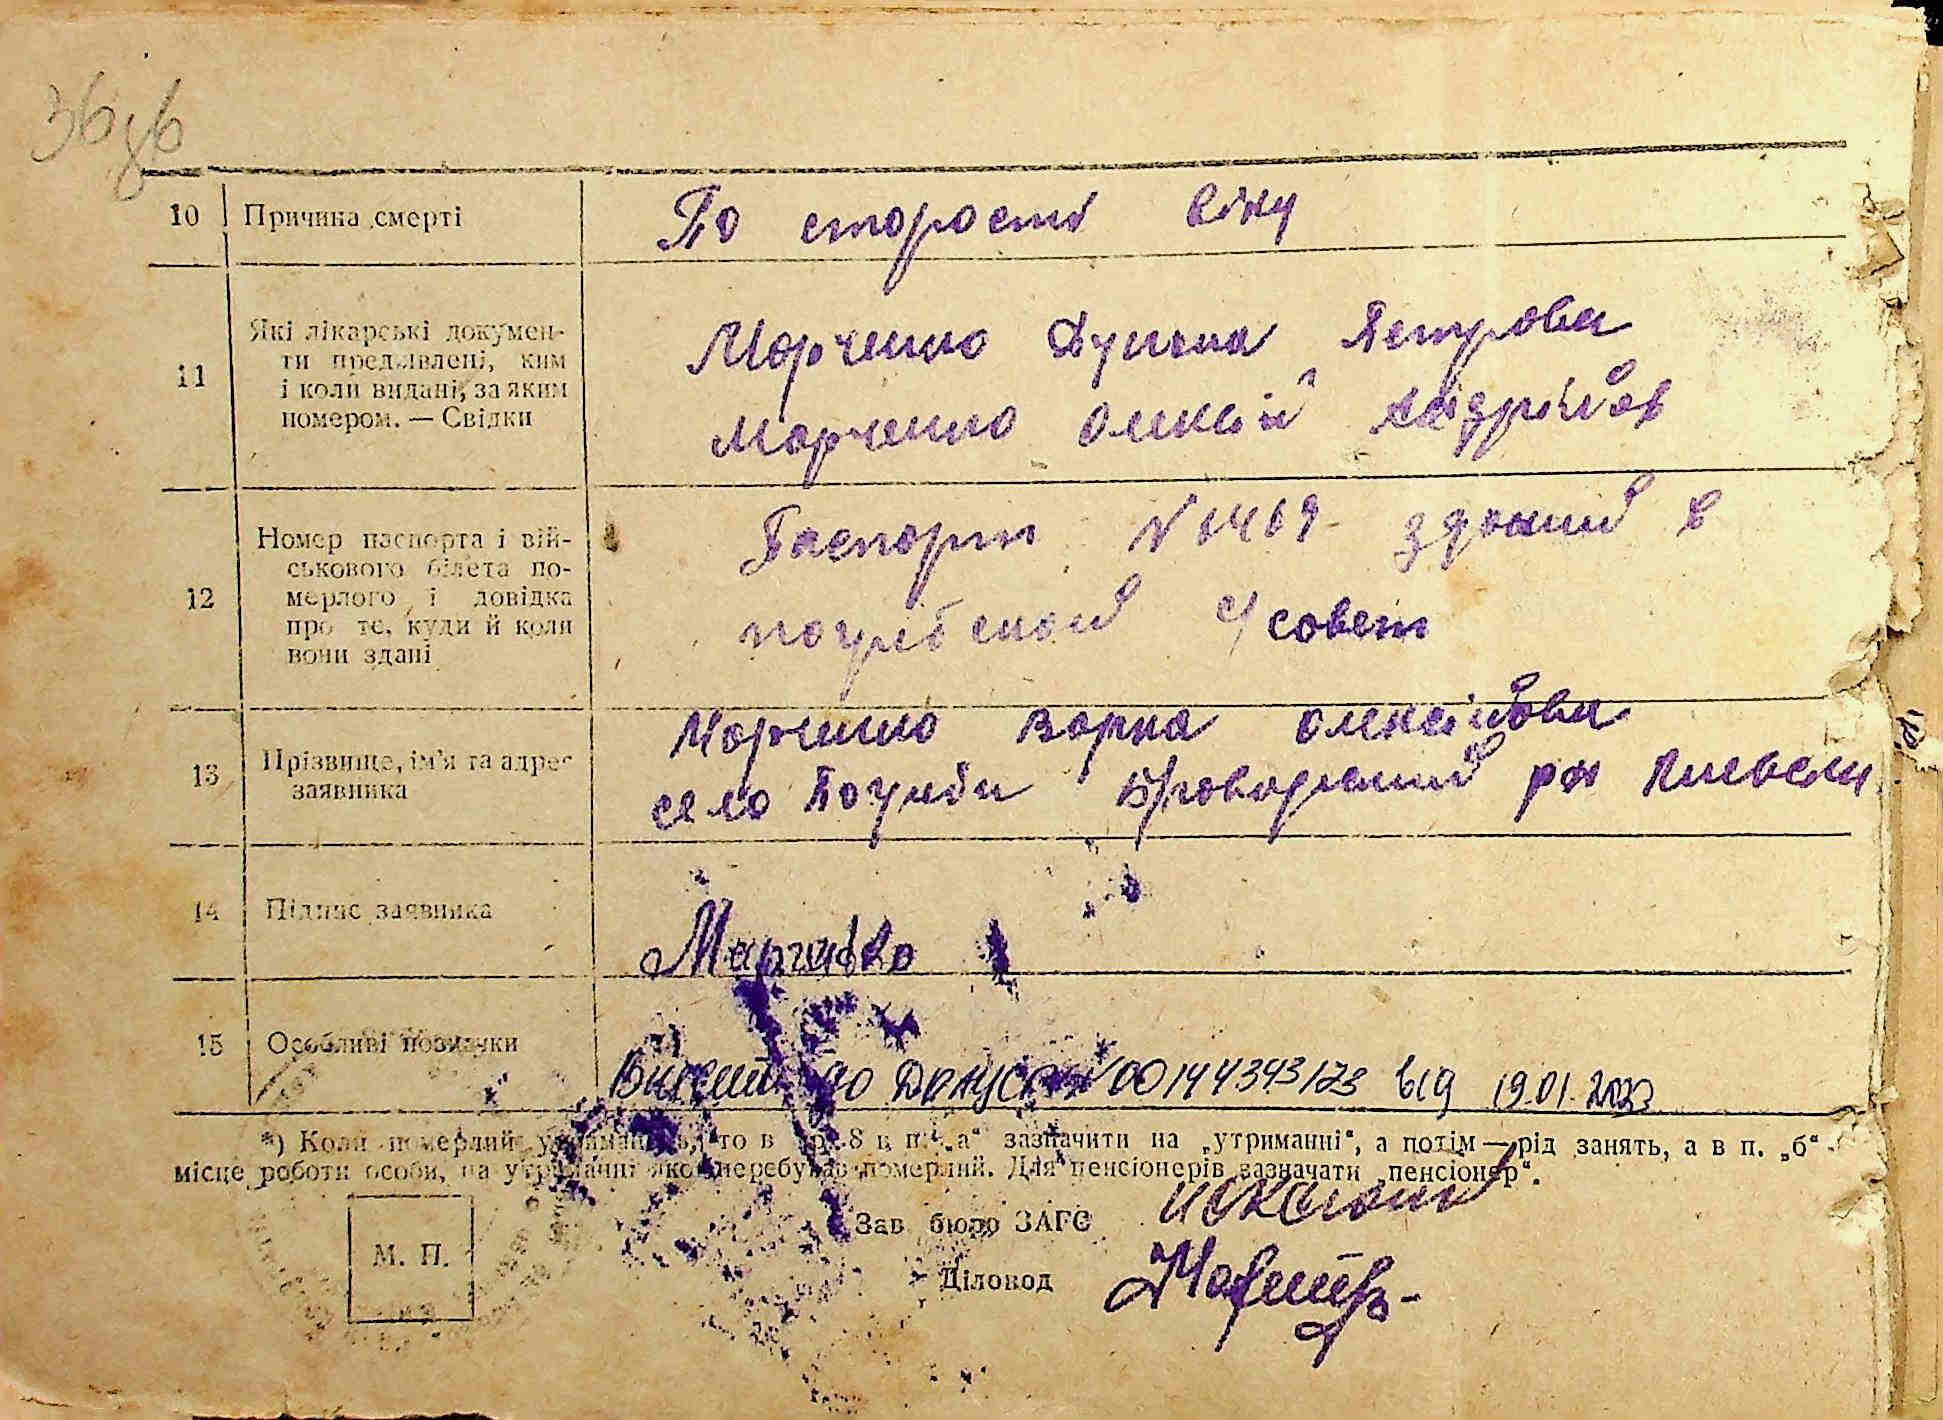 10 Причина смерті По старости віку
11 Які лікарські докумен-
ти пред'явлені, ким
і коли видані, за яким
номером. — Свідки
Марченко Петрова
Марченко Олексій
12 Номер паспорта і вій-
ськового білета по-
мерлого і довідка
про те, куди й коли
вони здані
Паспорт N зданий в
погребской с/совет
13 Прізвище, ім'я та адрес
заявника
Марченко Варка Олексійовна
село Погреби Броварский рн Киевском
14 Підпис заявника
Марченко
15 Особливі позначки
Внесений до ДРАЦСГ N 00144343123 від 19.01.2023
*) Коли померлий утриманець, то в гр. 8 в п. „а“ зазначити на „утриманні“, а потім — рід занять, а в п. „б“
місце роботи особи, на утриманні якої перебував померлий. Для пенсіонерів зазначати „пенсіонер“.
М. П.
Зав бюро ЗАГС
Діловод